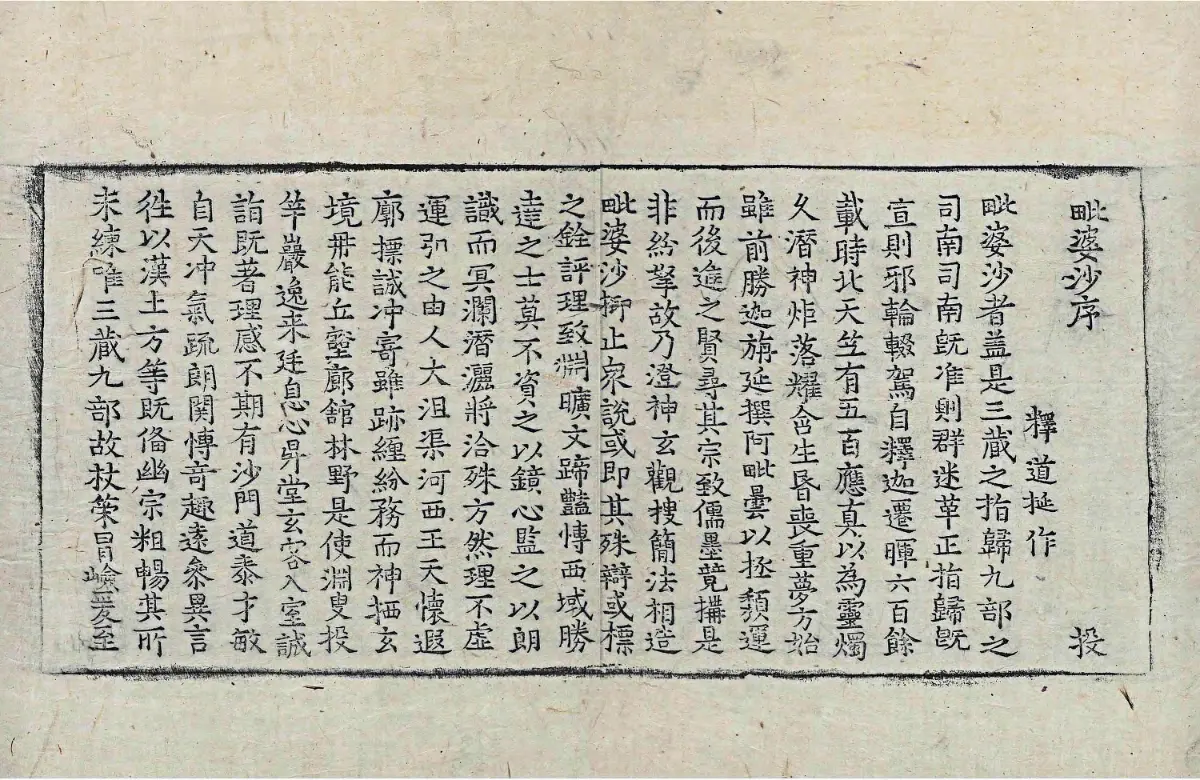 毗婆沙序 投
釋道挻作
毗婆沙者盖是三藏之指歸九部之
司南司南既准則群迷革正指歸旣
宣則邪輪輟駕自釋迦遷暉六百餘
載時北天竺有五百應真以為靈燭
久潛神炬落耀含生昏喪重夢方始
雖前勝迦旃延撰阿毗曇以拯頹運
而後進之賢尋其宗致儒墨竟搆是
非紛拏故乃澄神玄觀搜簡法相造
毗婆沙抑止衆說或即其殊辯或標
之銓評理致淵曠文蹄豔慱西域勝
達之士莫不資之以鏡心監之以朗
識而冥瀾潛灑將洽殊方然理不虚
運弘之由人大沮渠河西王天懷遐
廓摽誠冲寄雖跡纏紛務而神栖玄
境用能丘壑廊館林野是使淵叟投
竿巖逸来廷息心昇堂玄客入室誠
詣既著理感不期有沙門道泰才敏
自天冲氣疏朗関慱奇趣逺叅異言
徃以漢土方等既俻幽宗粗暢其所
未練唯三藏九部故杖策冒嶮爰至